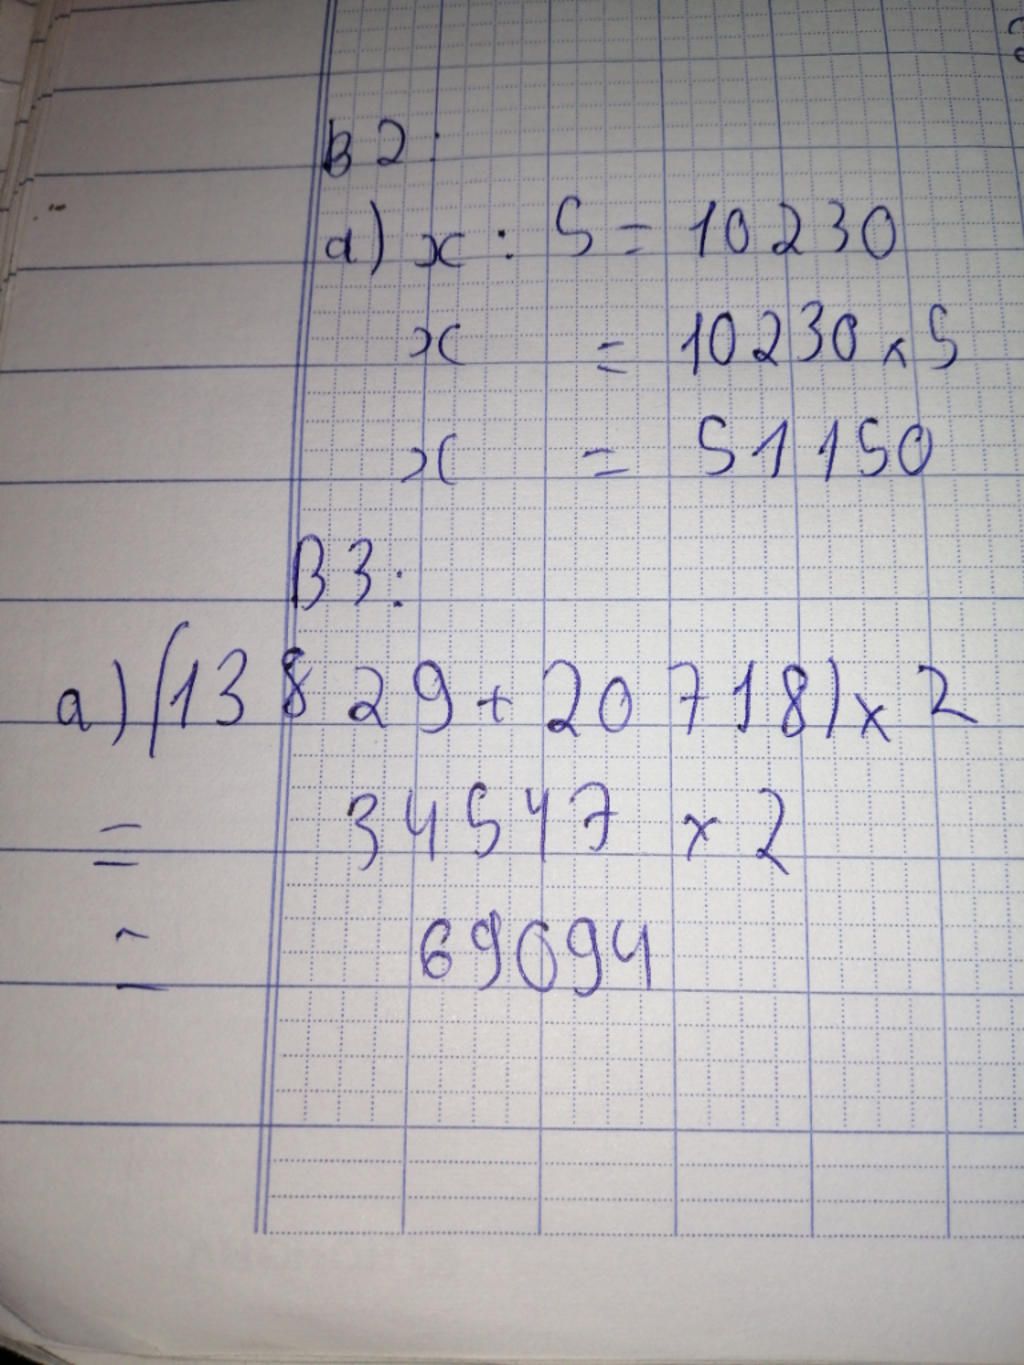 B2:
a) x : 5 = 10230
x = 10230 x 5
x = 51150
B3:
a) (13 829 + 20 718) x 2
= 34547 x 2
= 69094